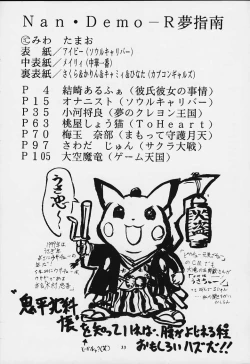 Nan・Demo－R夢指南
©みわ たまお
表 紙／アイビー（ソウルキャリバー）
中表紙／メイリィ（中華一番）
裏表紙／さくら＆かりん＆キャミィ＆ひなた（カプコンギャルズ）
P 4 結崎あるふぁ（彼氏彼女の事情）
P15 オナニスト（ソウルキャリバー）
P35 小河将良（夢のクレヨン王国）
P63 桃屋しょう猫（ToHeart）
P70 梅玉 奈部（まもって守護月天）
P97 さわだ じゅん（サクラ大戦）
P105 大空魔竜（ゲーム天国）
うさ忠〜
火盗
"鬼平犯科帳"
を知っていれば、腹がよじれる程
おもしろいハズだ!!